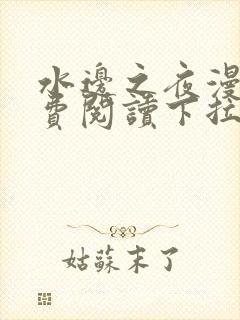 水邊之夜漫
費閱讀下拉
姑蘇末了